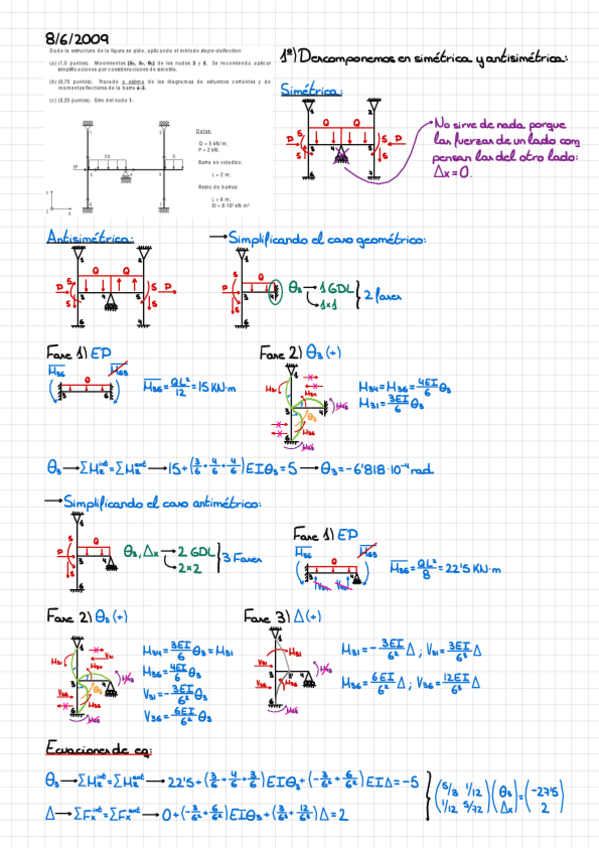 8/6/2009
Dada la estructura de la figura se pide, aplicando el método slope-deflection:
(a) (1,5 puntos). Movimientos (δx, δy, θz) de los nudos 3 y 5. Se recomienda aplicar
simplificaciones por consideraciones de simetría.
(b) (0,75 puntos). Trazado a estima de los diagramas de esfuerzos cortantes y de
momentos flectores de la barra
(c) (0,25 puntos). Giro del nudo 1.
Datos:
Q = 5 kN/m;
P = 2 kN;
Barra en voladizo:
L = 2 m;
Resto de barras:
L = 6 m;
1º) Descomponemos en simétrica y antisimétrica:
Simétrica:
No sirve de nada porque
las fuerzas de un lado com
pensan las del otro lado:
Δx=0.
Antisimétrica:
→Simplificando el caso geométrico:
θ3 → 1 GDL
1x1
2 fases
Fase 1) EP
M36
M63
Q
M36 = QL²/12 = 15 KN·m
Fase 2) θ3 (+)
M34 = M36 = 4EI/6 θ3
M31 = 3EI/6 θ3
θ3 → ΣMint = ΣMext → 15 + (3/6 + 4/6 + 4/6) EIθ3 = 5 → θ3 = -6'818·10⁻⁴ rad
→ Simplificando el caso antimétrico:
θ3, Δx → 2 GDL
2x2
3 Fases
Fase 1) EP
M36
M63
M36 = QL²/8 = 22'5 KN·m
Fase 2) θ3 (+)
M34 = 3EI/6 θ3 = M31
M36 = 4EI/6 θ3
V31 = -3EI/6² θ3
V36 = 6EI/6² θ3
Fase 3) Δ (+)
M31 = -3EI/6² Δ ; V31 = 3EI/6³ Δ
M36 = 6EI/6² Δ ; V36 = 12EI/6³ Δ
Ecuaciones de eq:
θ3 → ΣMint = ΣMext → 22'5 + (3/6 + 4/6 + 3/6) EIθ3 + (-3/6² + 6/6²) EIΔ = -5
Δ → ΣFxint = ΣFxext → 0 + (-3/6² + 6/6²) EIθ3 + (3/6³ + 12/6³) Δ = 2
(5/8 1/12 1/12 5/72) (θ3 Δx) = (-27'5 2)